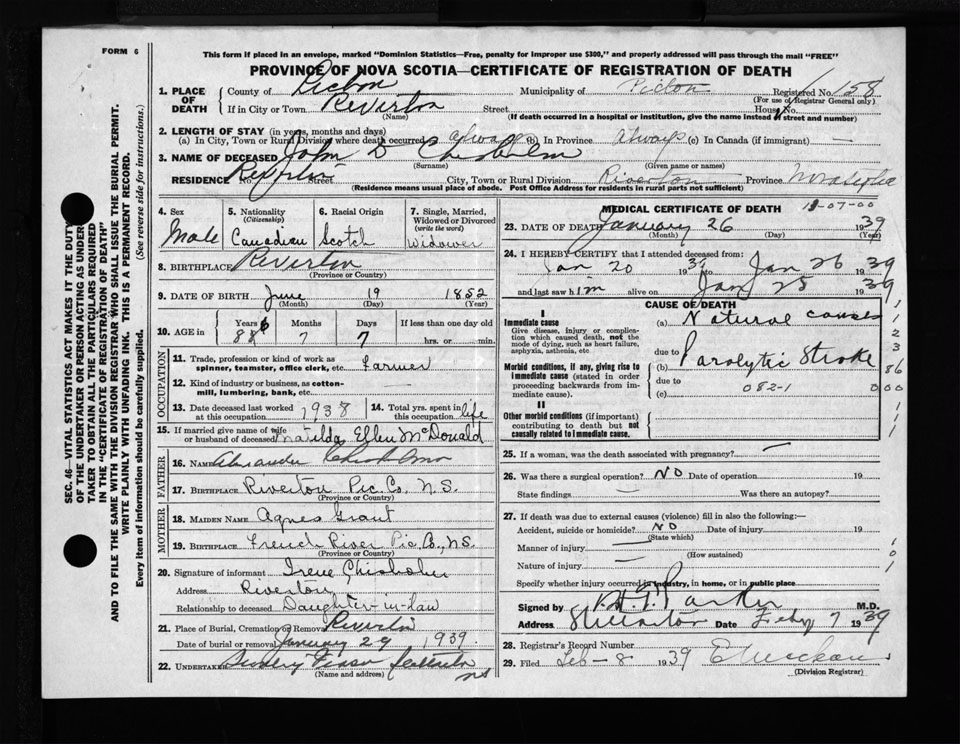 FORM 6
This form if placed in an envelope, marked "Dominion Statistics—Free, penalty for improper use $300," and properly addressed will pass through the mail "FREE"
PROVINCE OF NOVA SCOTIA—CERTIFICATE OF REGISTRATION OF DEATH
1. PLACE OF DEATH County of Pictou Municipality of Pictou Registered No. 158
(For use of Registrar General only)
If in City or Town Riverton Street House No.
(Name) (If death occurred in a hospital or institution, give the name instead of street and number)
2. LENGTH OF STAY (in years, months and days)
(a) In City, Town or Rural Division where death occurred always (b) In Province Always (c) In Canada (if immigrant) —
3. NAME OF DECEASED John D Chisholm
(Surname) (Given name or names)
RESIDENCE No. Riverton Street City, Town or Rural Division Riverton Province Nova Scotia
(Residence means usual place of abode. Post Office Address for residents in rural parts not sufficient)
4. Sex 5. Nationality 6. Racial Origin 7. Single, Married, Widowed or Divorced
(Citizenship) (write the word)
Male Canadian Scotch Widower
8. BIRTHPLACE Riverton
(Province or Country)
9. DATE OF BIRTH June 19 1852
(Month) (Day) (Year)
10. AGE in Years Months Days If less than one day old
7 7 hrs. or min.
OCCUPATION
11. Trade, profession or kind of work as spinner, teamster, office clerk, etc. Farmer
12. Kind of industry or business, as cotton-mill, lumbering, bank, etc. —
13. Date deceased last worked at this occupation 1938 14. Total yrs. spent in this occupation life
15. If married give name of wife or husband of deceased Matilda Ellen McDonald
FATHER
16. NAME Alexander Chisholm
17. BIRTHPLACE Riverton Pic. Co. N.S.
(Province or Country)
MOTHER
18. MAIDEN NAME Agnes Grant
19. BIRTHPLACE French River Pic Co., N.S.
(Province or Country)
20. Signature of informant Irene Chisholm
Address Riverton
Relationship to deceased Daughter-in-law
21. Place of Burial, Cremation or Removal Riverton
Date of burial or removal January 29 1939.
22. UNDERTAKER Stellarton
(Name and address) NS
MEDICAL CERTIFICATE OF DEATH
23. DATE OF DEATH January 26 1939
(Month) (Day) (Year)
24. I HEREBY CERTIFY that I attended deceased from:
Jan 20 1939 to Jan 26 1939
and last saw him alive on Jan 25 1939
CAUSE OF DEATH
I
Immediate cause
Give disease, injury or complication which caused death, not the mode of dying, such as heart failure, asphyxia, asthenia, etc
(a) Natural causes
due to
Morbid conditions, if any, giving rise to immediate cause (stated in order proceeding backwards from immediate cause).
(b) Paralytic Stroke
due to
082-1
(c)
II
Other morbid conditions (if important) contributing to death but not causally related to immediate cause.
25. If a woman, was the death associated with pregnancy? —
26. Was there a surgical operation? NO Date of operation 19
State findings — Was there an autopsy?
27. If death was due to external causes (violence) fill in also the following:—
Accident, suicide or homicide? NO Date of injury 19
(State which)
Manner of injury —
(How sustained)
Nature of injury —
Specify whether injury occurred in industry, in home, or in public place
Signed by Parker M.D.
Address Stellarton Date Feby 7 1939
28. Registrar's Record Number
29. Filed Feb - 8 1939
(Division Registrar)
SEC. 46—VITAL STATISTICS ACT MAKES IT THE DUTY
OF THE UNDERTAKER OR PERSON ACTING AS UNDERTAKER TO OBTAIN ALL THE PARTICULARS REQUIRED
IN THE "CERTIFICATE OF REGISTRATION OF DEATH"
AND TO FILE THE SAME WITH THE DIVISION REGISTRAR WHO SHALL ISSUE THE BURIAL PERMIT.
WRITE PLAINLY WITH UNFADING INK. THIS IS A PERMANENT RECORD.
Every item of information should be carefully supplied. (See reverse side for instructions.)